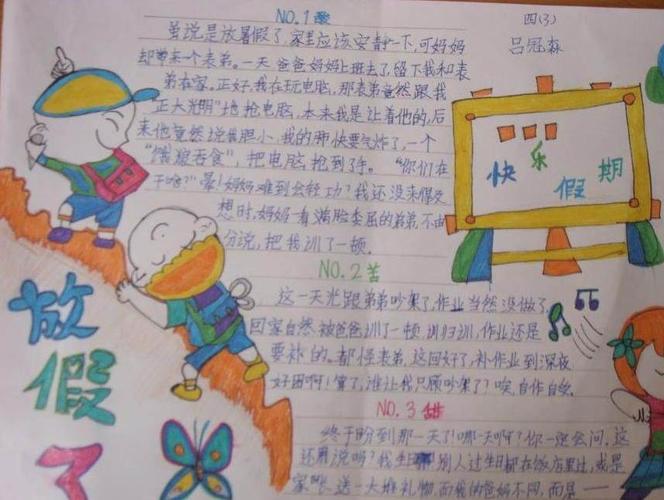 NO.1酸
四(3)
吕冠森
虽说是放暑假了,家里应该安静一下,可妈妈
却带来一个表弟。一天爸爸妈妈上班去了,留下我和表
弟在家。正好,我在玩电脑,那表弟竟然跟我
"正大光明"地抢电脑,本来我是让着他的,后
来他竟然说我胆小,我的那快要气炸了,一个
"饿狼吞食",把电脑抢到手。"你们在
干啥?"晕!妈妈难到会轻功?我还没来得及
想时,妈妈一看满脸委屈的弟弟,不由
分说,把我训了一顿。
快乐假期
NO.2苦
这一天光跟弟弟吵架了,作业当然没做了,
回家自然被爸爸训了一顿,训归训,作业还是
要补的。都怪表弟,这回好了,补作业到深夜
好困啊!算了,谁让我只顾吵架了?唉,自作自受
NO.3甜
终于盼到那一天了!哪一天啊?你一定会问,这
还用说吗?我生日别人过生日都在饭店里过,或是
家长送一大堆礼物,而我的爸妈不同,而是一
放假了